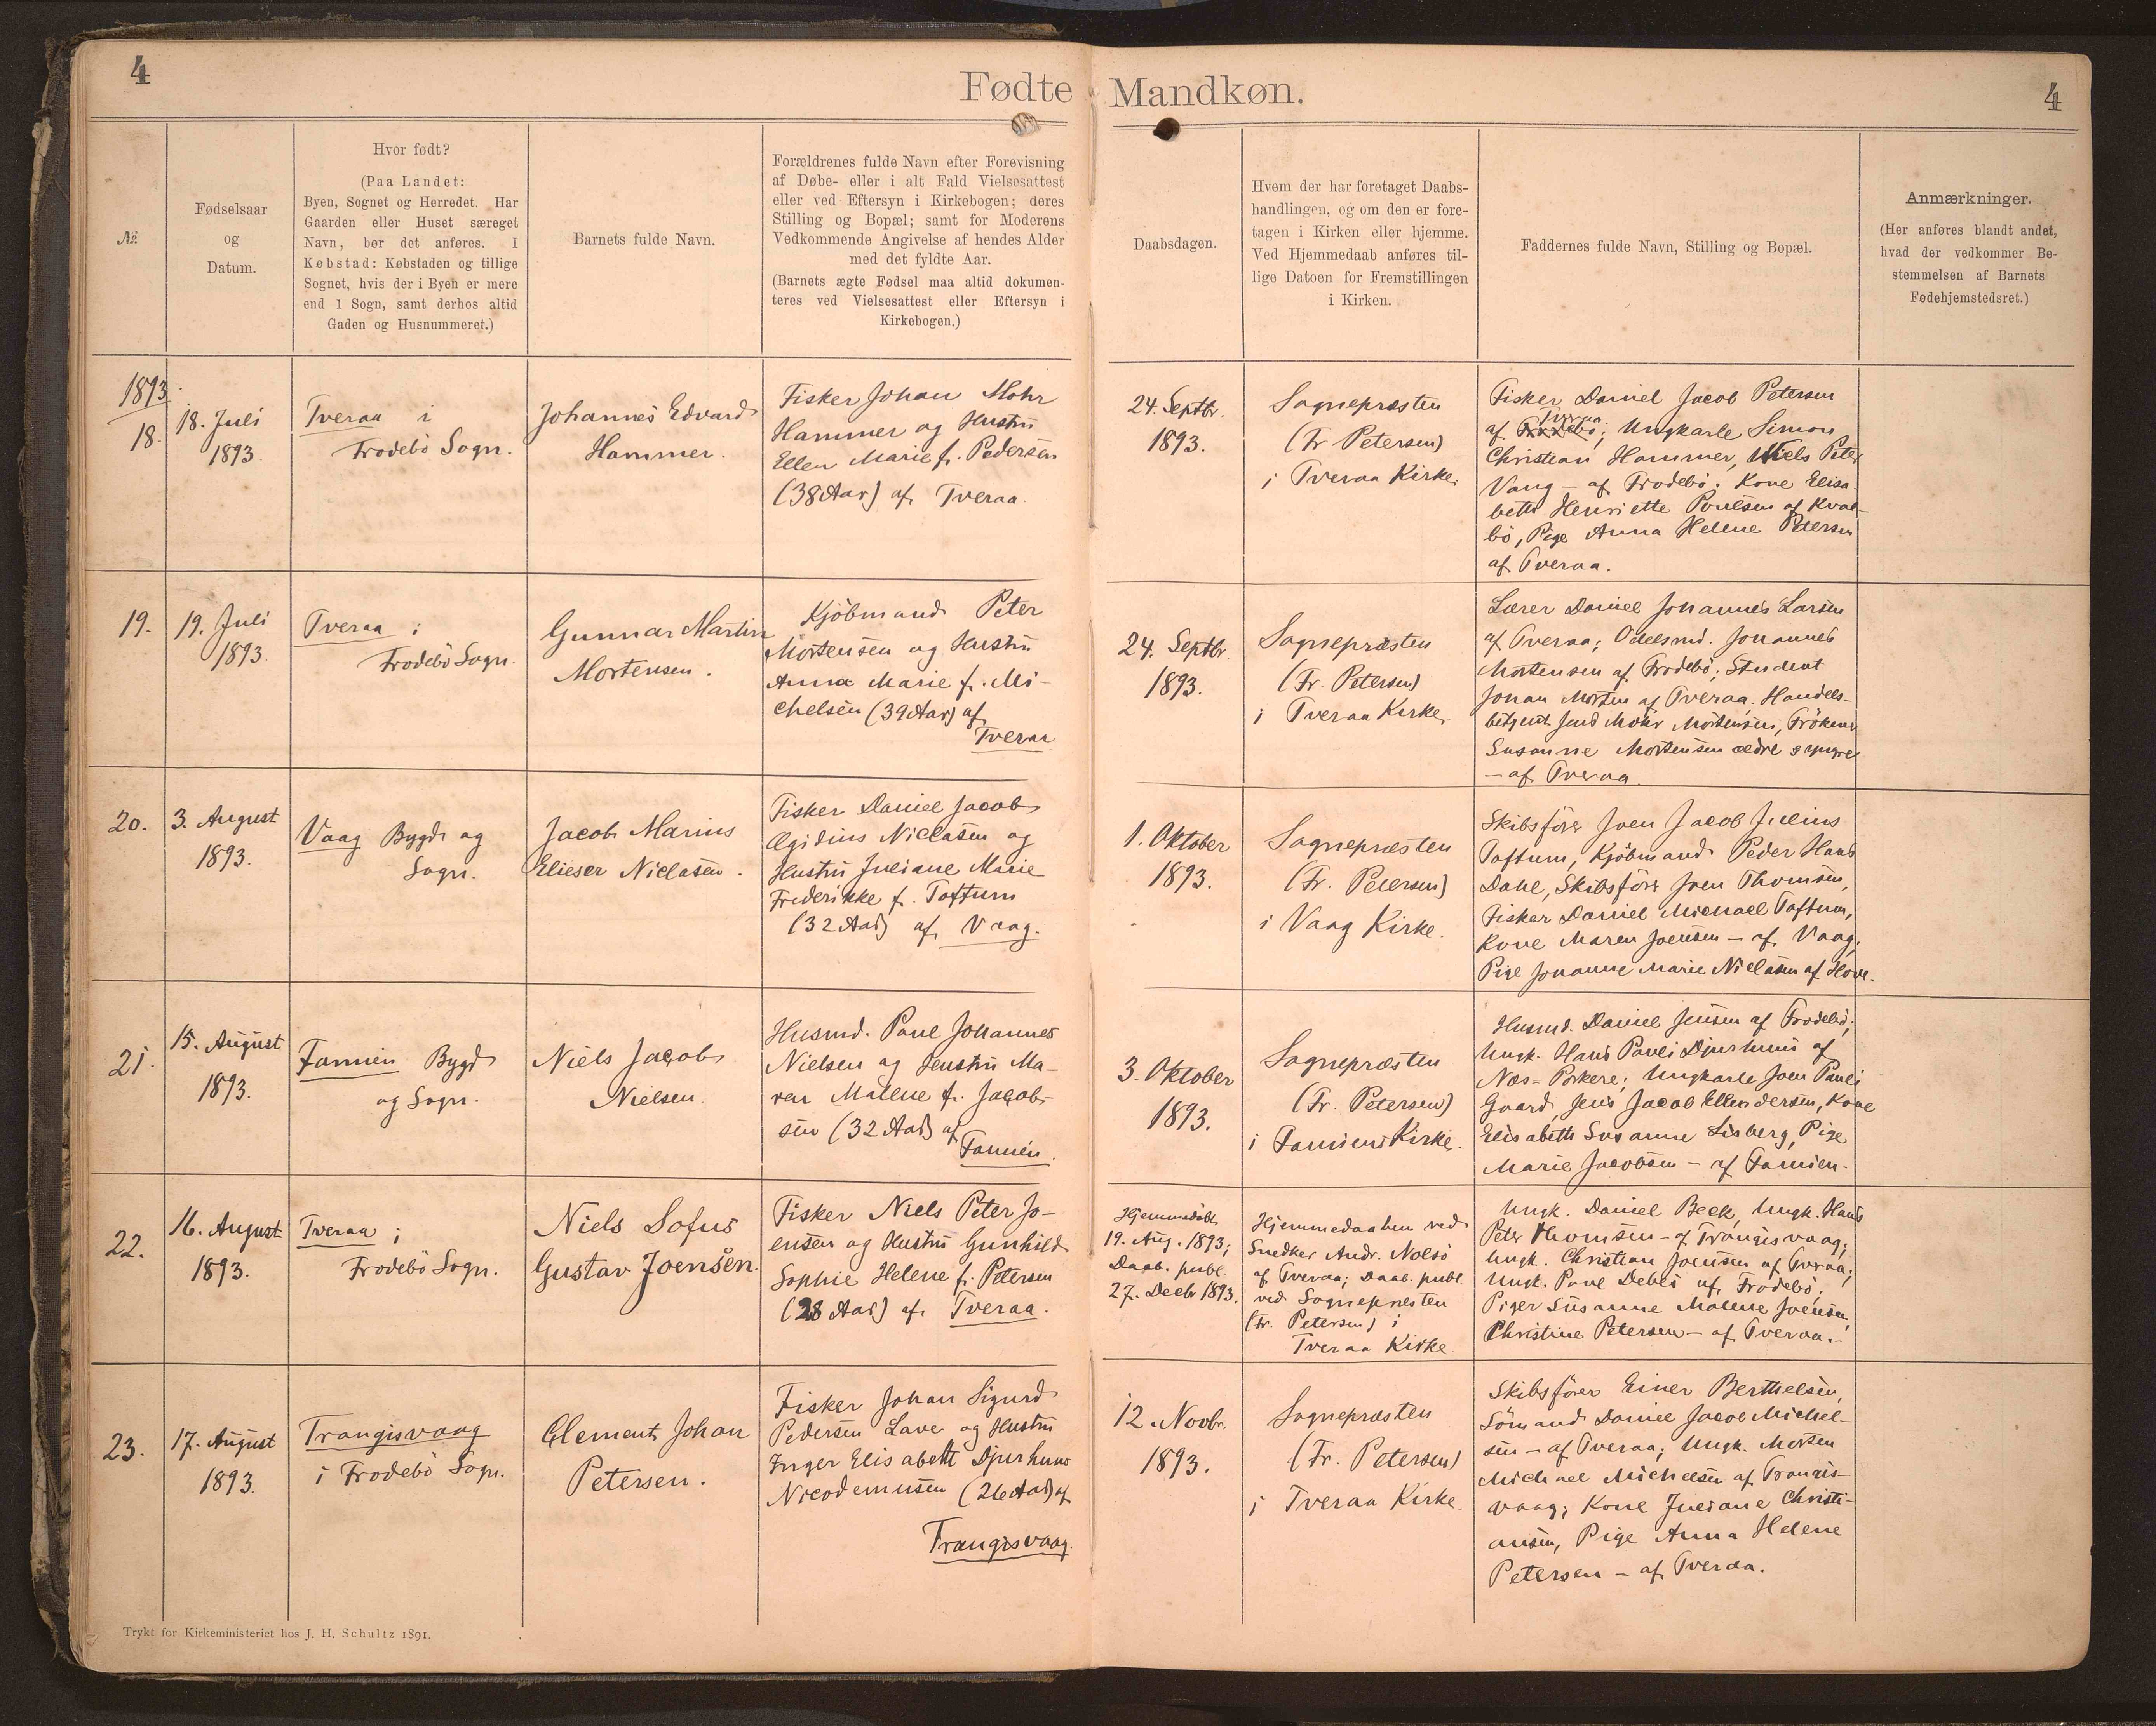 4
Fødte
Mandkøn.
4
№
Fødselsaar
og
Datum.
Hvor født?
(Paa Landet:
Byen, Sognet og Herredet. Har
Gaarden eller Huset særeget
Navn, bør det anføres. I
Købstad: Købstaden og tillige
Sognet, hvis der i Byen er mere
end 1 Sogn, samt derhos altid
Gaden og Husnummeret.)
Barnets fulde Navn.
Forældrenes fulde Navn efter Forevisning
af Døbe- eller i alt Fald Vielsesattest
eller ved Eftersyn i Kirkebogen; deres
Stilling og Bopæl; samt for Moderens
Vedkommende Angivelse af hendes Alder
med det fyldte Aar.
(Barnets ægte Fødsel maa altid dokumen-
teres ved Vielsesattest eller Eftersyn i
Kirkebogen.)
Daabsdagen.
Hvem der har foretaget Daabs-
handlingen, og om den er fore-
tagen i Kirken eller hjemme.
Ved Hjemmedaab anføres til-
lige Datoen for Fremstillingen
i Kirken.
Faddernes fulde Navn, Stilling og Bopæl.
Anmærkninger.
(Her anføres blandt andet,
hvad der vedkommer Be-
stemmelsen af Barnets
Fødehjemstedsret.)
1893
18.
18. Juli
1893.
Tveraa i
Frodebö Sogn.
Johannes Edvard
Hammer.
Fisker Johan Mohr
Hammer og Hustru
Ellen Marie f. Pedersen
(38 Aar) af Tveraa.
24. Septbr.
1893.
Sognepræsten
(Fr Petersen)
i Tveraa Kirke.
Fisker Daniel Jacob Petersen
Tveraa
af Frodebö; Ungkarle Simon
Christian Hammer, Niels Peter
Vang - af Frodebö; Kone Elisa-
beth Henriette Poulsen af Kval-
bö, Pige Anna Helene Petersen
af Tveraa.
19.
19. Juli
1893.
Tveraa i
Frodebö Sogn.
Gunnar Martin
Mortensen.
Kjöbmand Peter
Mortensen og Hustru
Anna Marie f. Mi-
chelsen (39 Aar) af
Tveraa
24. Septbr
1893.
Sognepræsten
(Fr. Petersen)
i Tveraa Kirke.
Lærer Daniel Johannes Larsen
af Tveraa; Odelsmd. Johannes
Mortensen af Frodebö; Student
Johan Morten af Tveraa, Handels-
betjent Mohr Mortensen, Frökene
Susanne Mortensen ældre & yngre
- af Tveraa.
20.
3. August
1893.
Vaag Bygd og
Sogn.
Jacob Marius
Elieser Niclasen.
Fisker Daniel Jacob
Ægidius Niclasen og
Hustru Juliane Marie
Frederikke f. Toftum
(32 Aar) af Vaag.
1. Oktober
1893.
Sognepræsten
(Fr. Petersen)
i Vaag Kirke.
Skibsförer Joen Jacob Julius
Toftum, Kjöbmand Peder Hans
Dahl, Skibsförer Joen Thomsen,
Fisker Daniel Michael Toftum,
Kone Maren Joensen - af Vaag;
Pige Johanne Marie Niclasen af Hove.
21.
15. August
1893.
Famien Bygd
og Sogn.
Niels Jacob
Nielsen.
Husmd. Poul Johannes
Nielsen og Hustru Ma-
ren Malene f. Jacob-
sen (32 Aar) af
Famien.
3. Oktober
1893.
Sognepræsten
(Fr. Petersen)
i Famiens Kirke.
Husmd. Daniel Jensen af Frodebö;
Ungk. Hans Pauli Djurhuus af
Næs - Porkere; Ungkarle Joen Pauli
Gaard, Jens Jacob Ellendersen, Kone
Elisabeth Susanne Lisberg, Pige
Marie Jacobsen - af Famien.
22.
16. August
1893.
Tveraa i
Frodebö Sogn.
Niels Sofus
Gustav Joensen.
Fisker Niels Peter Jo-
ensen og Hustru Gunhild
Sophie Helene f. Petersen
(28 Aar) af Tveraa.
Hjemmedöbt
19. Aug. 1893;
Daab. publ.
27. Decbr 1893.
Hjemmedaaben ved
Snedker Andr. Nolsö
af Tveraa; Daab. publ
ved Sognepræsten
(Fr. Petersen) i
Tveraa Kirke
Ungk. Daniel Beck, Ungk. Hans
Peter Thomsen - af Trangisvaag;
Ungk. Christian Joensen af Tveraa;
Ungk. Poul Debes af Frodebö;
Piger Susanne Malene Joensen,
Christine Petersen - af Tveraa.-
23.
17. August
1893.
Trangisvaag
i Frodebö Sogn.
Clement Johan
Petersen.
Fisker Johan Sigurd
Pedersen Lave og Hustru
Inger Elisabeth Djurhuus
Nicodemusen (26 Aar) af
Trangisvaag.
12. Novbr.
1893.
Sognepræsten
(Fr. Petersen)
i Tveraa Kirke.
Skibsförer Einer Berthelsen,
Sömand Daniel Jacob Michel-
sen - af Tveraa; Ungk. Morten
Michael Michelsen af Trangis-
vaag; Kone Juliane Christi-
ansen, Pige Anna Helene
Petersen - af Tveraa.
Trykt for Kirkeministeriet hos J. H. Schultz 1891.